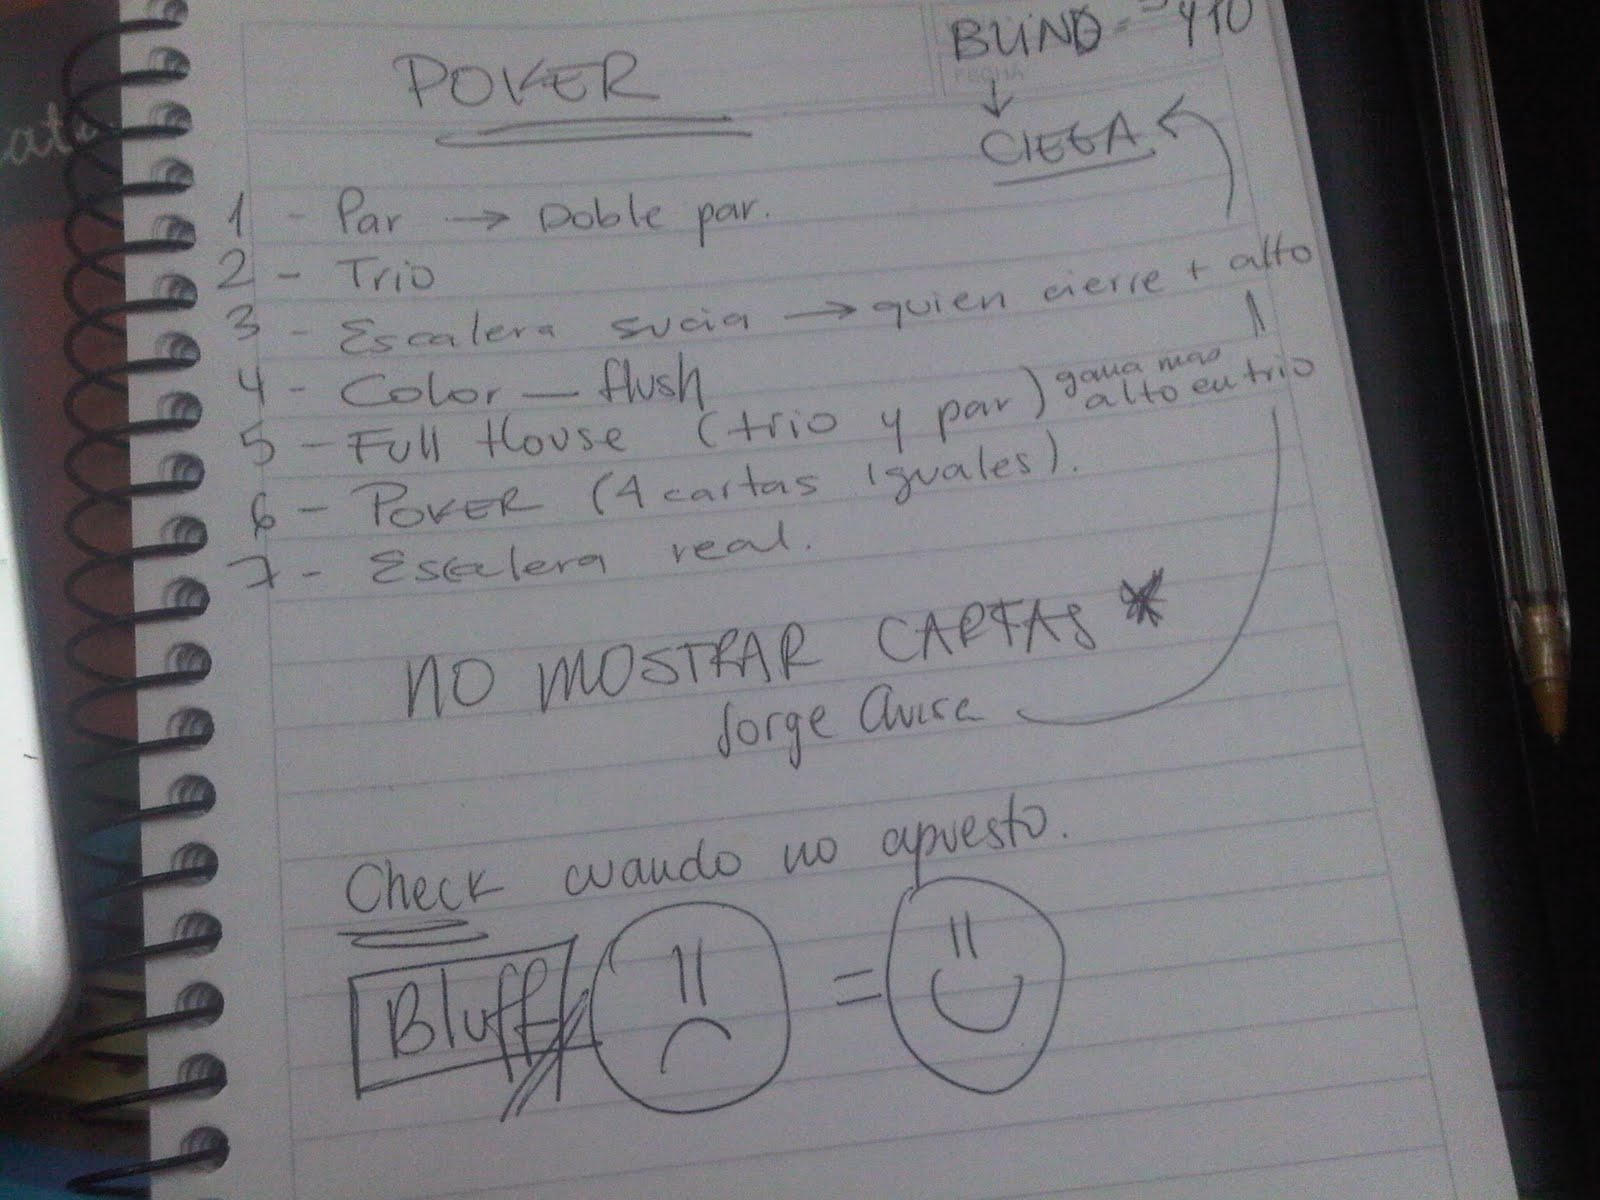 POKER
BLIND = 5 y 10
FECHA
CIEGA
1 - Par → Doble par.
2 - Trio
3 - Escalera sucia → quien cierre + alto
4 - Color — flush
5 - Full House (trio y par) gana mas alto en trio
6 - POKER (4 cartas iguales).
7 - Escalera real.
NO MOSTRAR CARTAS *
Jorge avisa
Check cuando no apuesto.
Bluff =